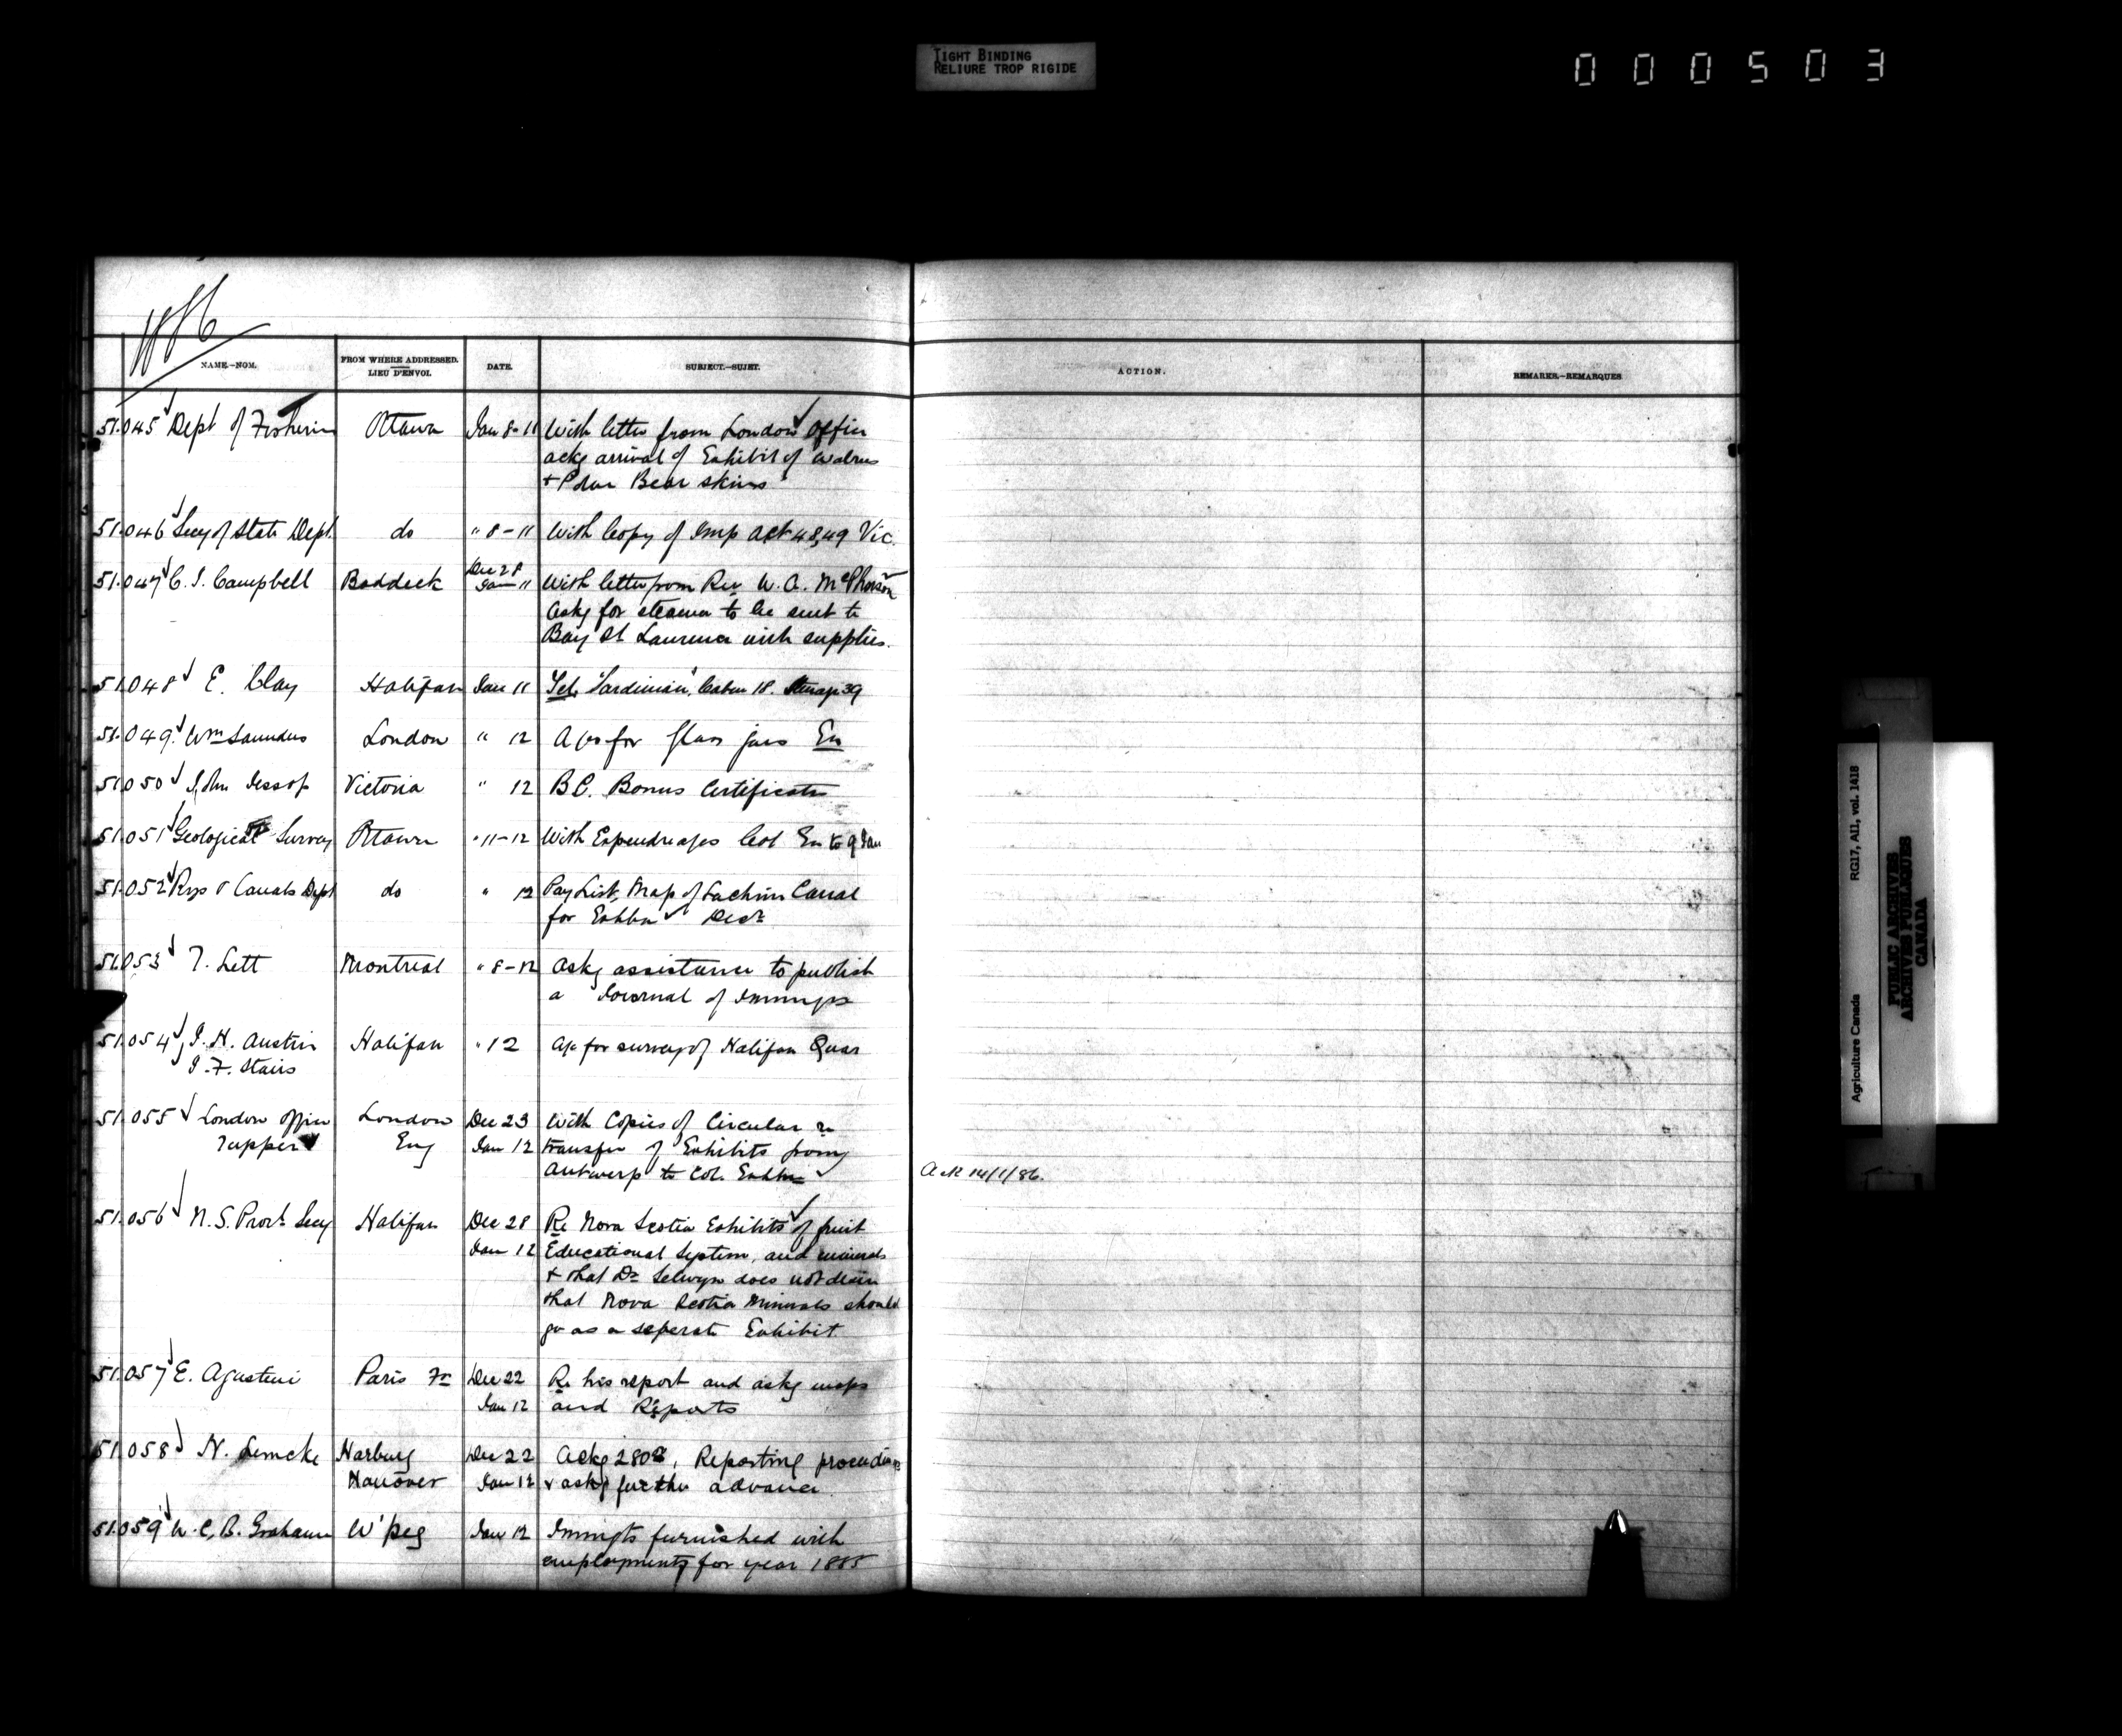 TIGHT BINDING
RELIURE TROP RIGIDE
000503
1886
NAME.—NOM. FROM WHERE ADDRESSED. LIEU D'ENVOI. DATE. SUBJECT.—SUJET. ACTION. REMARKS.—REMARQUES
51.045 Dept of Fisheries Ottawa Jan 8-11 With letter from London Office
ackg arrival of Exhibit of Walrus
+ Polar Bear skins
51.046 Secy of State Dept do " 8-11 With Copy of Imp Act 48,49 Vic.
51.047 C. J. Campbell Baddeck Dec 28 Jan 11 With letter from Rev W. A. McPherson
askg for steamer to be sent to
Bay St Laurence with supplies.
51.048 E. Clay Halifax Jan 11 Tel. "Sardinian", Cabin 18. Steerage 39
51.049 Wm Saunders London " 12 A/cs for glass jars Ex
51.050 John Jessop Victoria " 12 B.C. Bonus Certificates
51.051 Geological Survey Ottawa " 11-12 With Expendre a/cs Col Ex to 9 Jan
51.052 Rys & Canals Dept do " 12 Pay List, Map of Lachine Canal
for Exhbn Decr
51.053 T. Lett Montreal " 8-12 Askg assistance to publish
a Journal of Immign
51.054 J. H. Austin Halifax " 12 A/c for survey of Halifax Quar
J. F. Stairs
51.055 London Office London Dec 23 With Copies of Circular re
Tupper Eng Jan 12 transfer of Exhibits from
Antwerp to Col. Exhbn Ack 14/1/86.
51.056 N.S. Provl Secy Halifax Dec 28 Re Nova Scotia Exhibits of fruit
Jan 12 Educational System, and minerals
+ that Dr Selwyn does not desire
that Nova Scotia Minerals should
go as a seperate Exhibit.
51.057 E. Agostini Paris Fr Dec 22 Re his report and askg maps
Jan 12 and Reports
51.058 N. Lemcke Harburg Dec 22 Ackg 280, Reporting proceedings
Hanover Jan 12 & askg further advance.
51.059 W. C. B. Grahame W'peg Jan 12 Immgts furnished with
employments for year 1885
Agriculture Canada RG17, AII, vol. 1418
PUBLIC ARCHIVES
ARCHIVES PUBLIQUES
CANADA